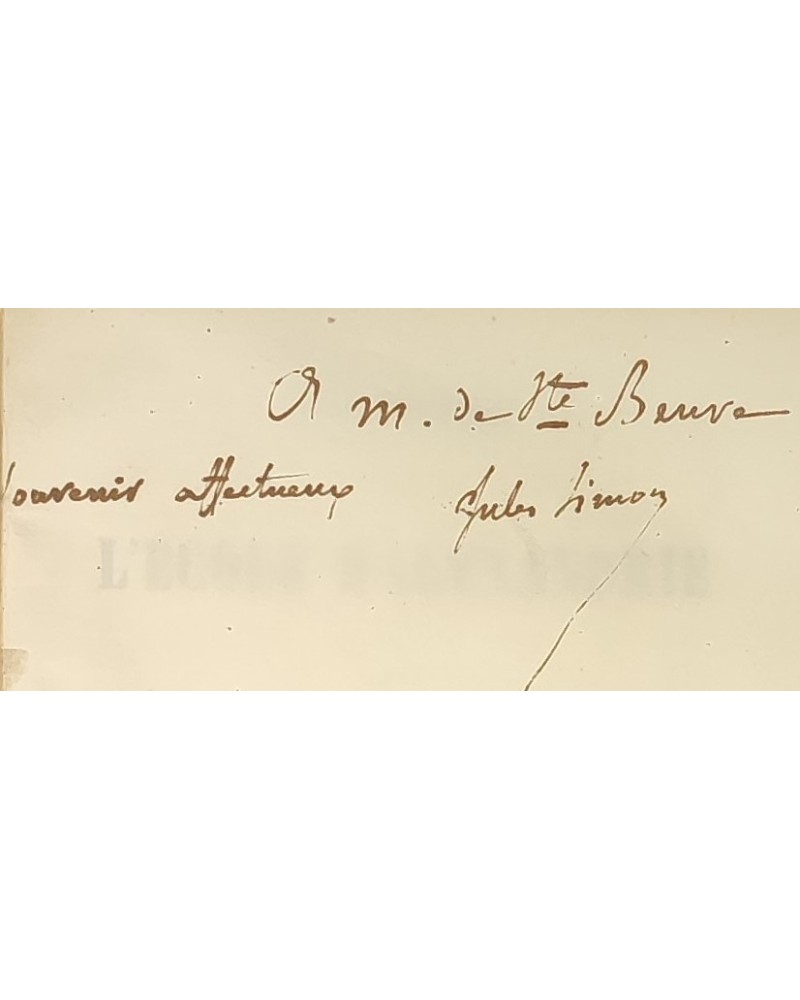 A M. de Ste Beuve
Souvenir affectueux Jules Simon
L'ECOLE D'ALEXANDRIE